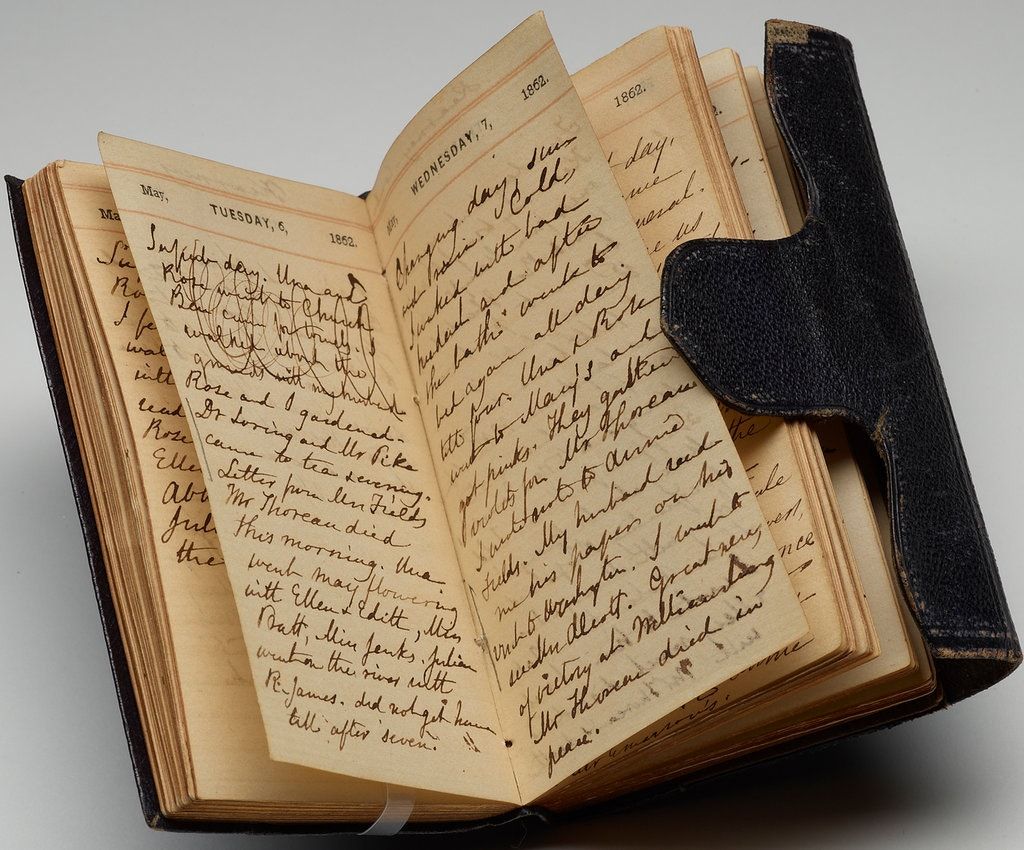 May,
TUESDAY, 6,
1862.
Superb day. Una and
Rose went to Church
walked about the
grounds with my husband
Rose and I gardened.
Dr Loring and Mr Pike
came to tea & evening.
Letter from Mrs Fields
Mr Thoreau died
this morning. Una
went May flowering
with Ellen & Edith, Miss
Platt, Miss Jenks, Julian
went on the river with
R. James. did not get home
till after seven.
May,
WEDNESDAY, 7,
1862.
Changing day, sun
and rain. Cold,
I waked with bad
headach and after
the bath went to
bed again all day
till four. Una & Rose
went to Mary's and
got pinks. They gathered
violets for Mr Thoreau
I wrote to Annie
Fields. My husband read
me his papers on his
visit to Washington. I went to
see Mrs Alcott. Great news
of victory at Williamsburg
Mr Thoreau died in
peace.
Ma
Su
Ro
I fe
wal
with
read
Rose
Elle
Abb
Juli
the
1862.
day,
me
us
the